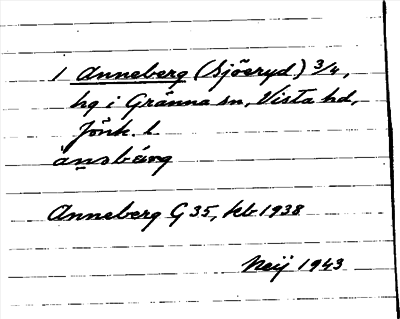 1 Anneberg (Sjöeryd) 3/4,
hg i Gränna sn, Vista hd,
Jönk. l.
Anneberg G 35, kb 1938
Neij 1943